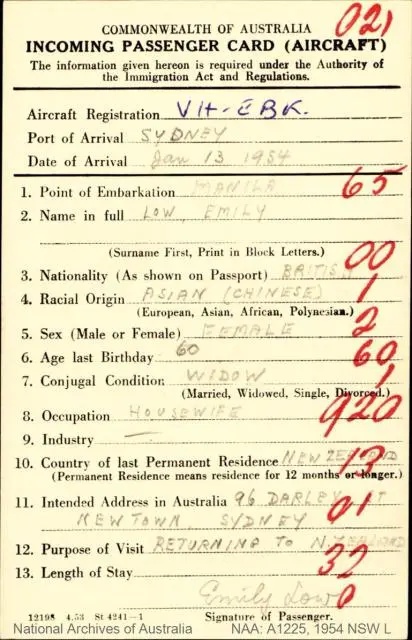 021
COMMONWEALTH OF AUSTRALIA
INCOMING PASSENGER CARD (AIRCRAFT)
The information given hereon is required under the Authority of
the Immigration Act and Regulations.
Aircraft Registration VH-EBK.
Port of Arrival SYDNEY
Date of Arrival Jan 13 1954
1. Point of Embarkation MANILA 65
2. Name in full LOW, EMILY
(Surname First, Print in Block Letters.) 00
3. Nationality (As shown on Passport) BRITISH
4. Racial Origin ASIAN (CHINESE) 1
(European, Asian, African, Polynesian.)
5. Sex (Male or Female) FEMALE 2
6. Age last Birthday 60 60
7. Conjugal Condition WIDOW 1
(Married, Widowed, Single, Divorced.)
8. Occupation HOUSEWIFE 920
9. Industry —
10. Country of last Permanent Residence NEW ZEALAND 13
(Permanent Residence means residence for 12 months or longer.)
11. Intended Address in Australia 96 DARLEY ST 01
NEWTOWN, SYDNEY
12. Purpose of Visit RETURNING TO N. ZEALAND 32
13. Length of Stay 0
Emily Low
12198 4.53 St 4241—1 Signature of Passenger.
National Archives of Australia NAA: A1225, 1954 NSW L